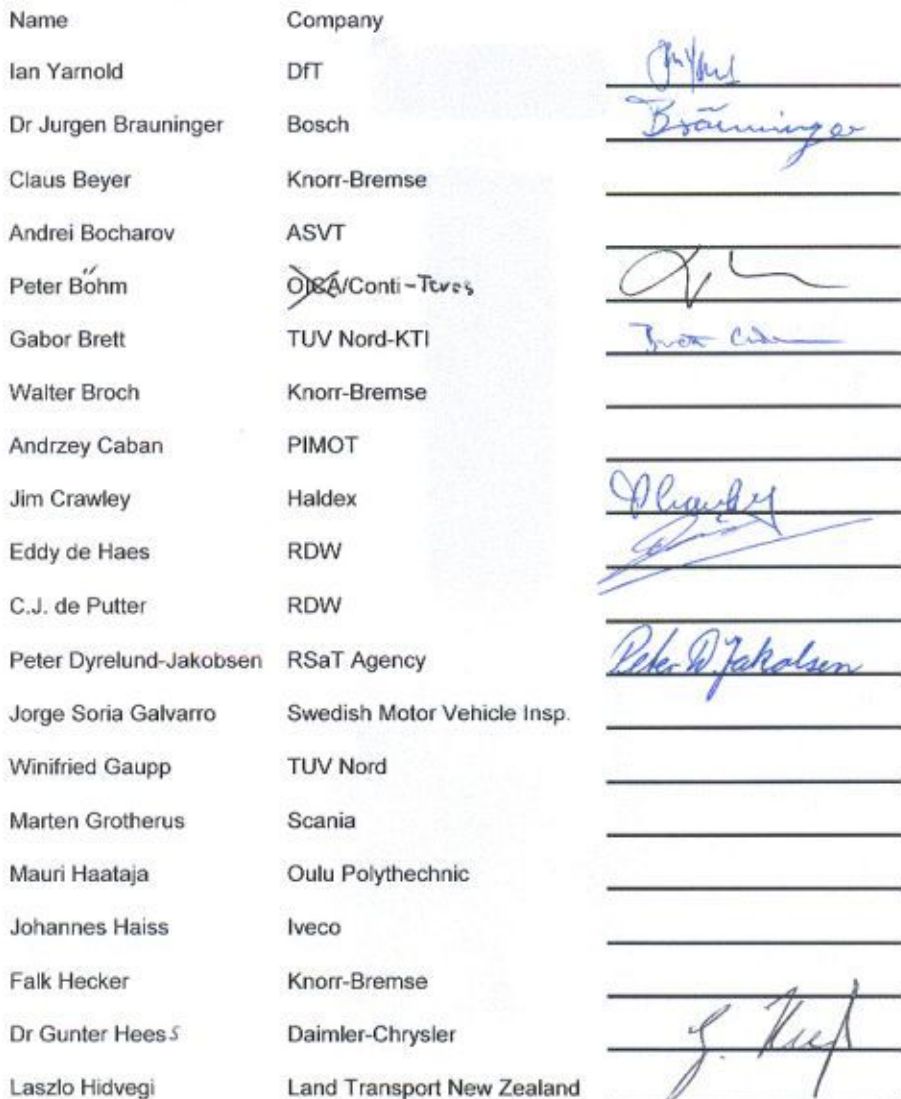 Name Company
Ian Yarnold DfT
Dr Jurgen Brauninger Bosch Bräuninger
Claus Beyer Knorr-Bremse
Andrei Bocharov ASVT
Peter Böhm OICA/Conti-Teves
Gabor Brett TUV Nord-KTI
Walter Broch Knorr-Bremse
Andrzey Caban PIMOT
Jim Crawley Haldex
Eddy de Haes RDW
C.J. de Putter RDW
Peter Dyrelund-Jakobsen RSaT Agency Peter D. Jakobsen
Jorge Soria Galvarro Swedish Motor Vehicle Insp.
Winifried Gaupp TUV Nord
Marten Grotherus Scania
Mauri Haataja Oulu Polythechnic
Johannes Haiss Iveco
Falk Hecker Knorr-Bremse
Dr Gunter Heess Daimler-Chrysler
Laszlo Hidvegi Land Transport New Zealand